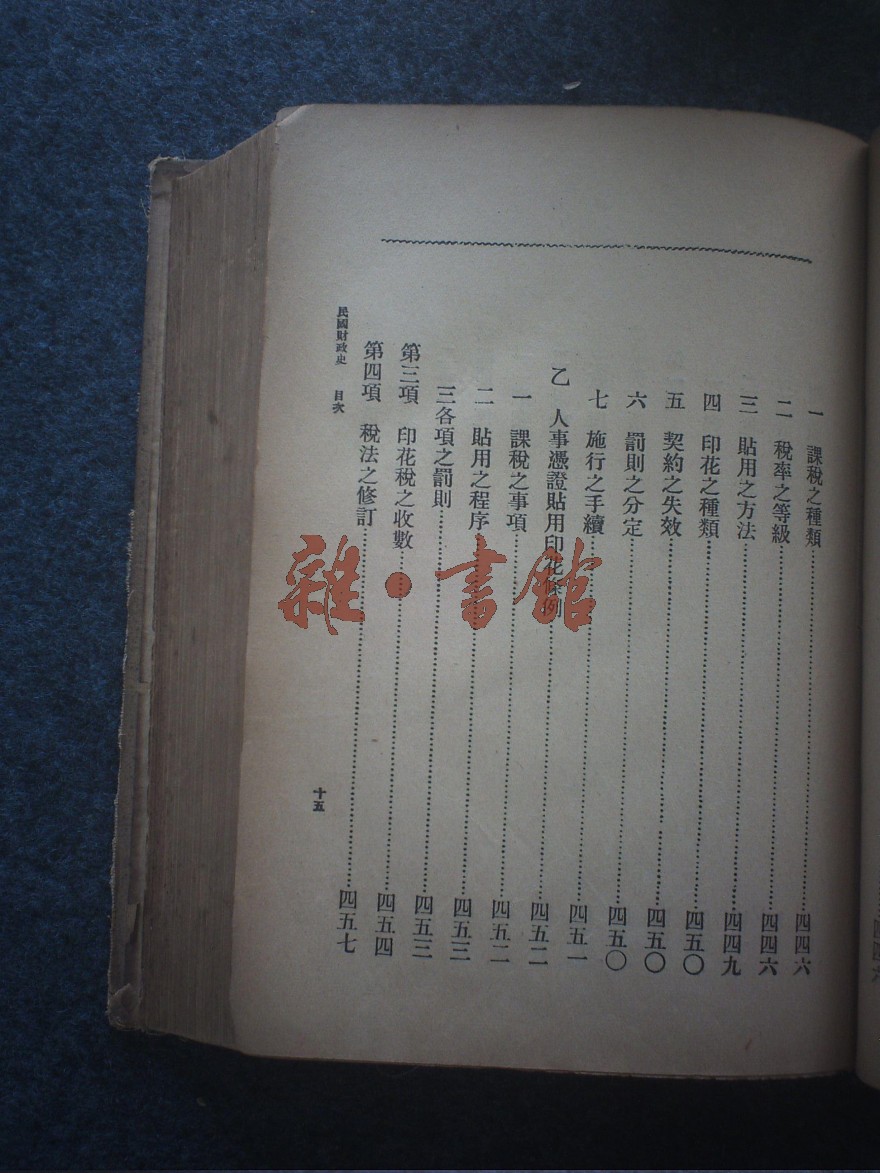 一 課稅之種類……四四六
二 稅率之等級……四四六
三 貼用之方法……四四九
四 印花之種類……四五〇
五 契約之失效……四五〇
六 罰則之分定……四五〇
七 施行之手續……四五一
乙 人事憑證貼用印花條例……四五二
一 課稅之事項……四五二
二 貼用之程序……四五三
三各項之罰則……四五三
第三項 印花稅之收數……四五四
第四項 稅法之修訂……四五七
民國財政史 目次
十五
雜·書館